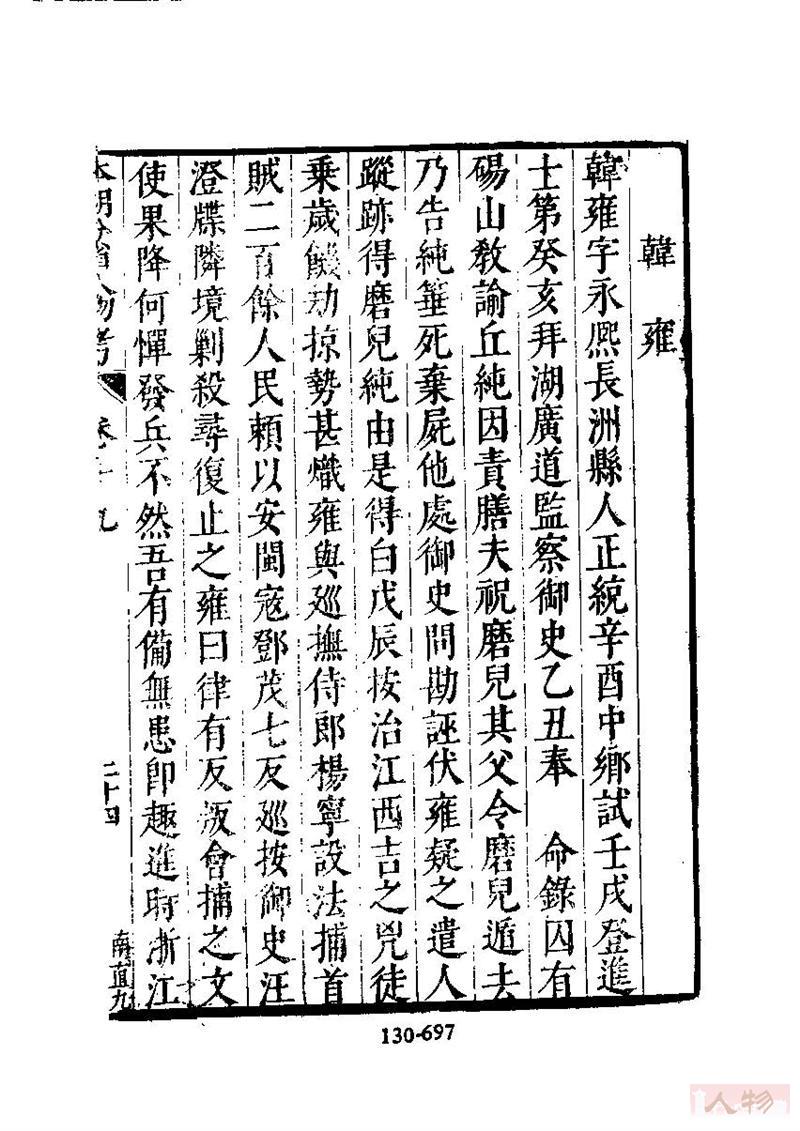 韓雍
韓雍字永熈長洲縣人正統辛酉中鄉試壬戌登進
士第癸亥拜湖廣道監察御史乙丑奉 命錄囚有
碭山敎諭丘純因責膳夫祝磨兒其父令磨兒遁去
乃告純箠死棄屍他處御史問勘誣伏雍疑之遣人
蹤跡得磨兒純由是得白戊辰按治江西吉之兇徒
乘歲饑劫掠勢甚熾雍與廵撫侍郎楊寧設法捕首
賊二百餘人民賴以安閩寇鄧茂七反廵按御史汪
澄牒隣境剿殺尋復止之雍曰律有反叛會捕之文
使果降何憚發兵不然吾有備無患卽趣進時浙江
本朝分省人物考 卷十九 二十四 南直九
130-697
人物